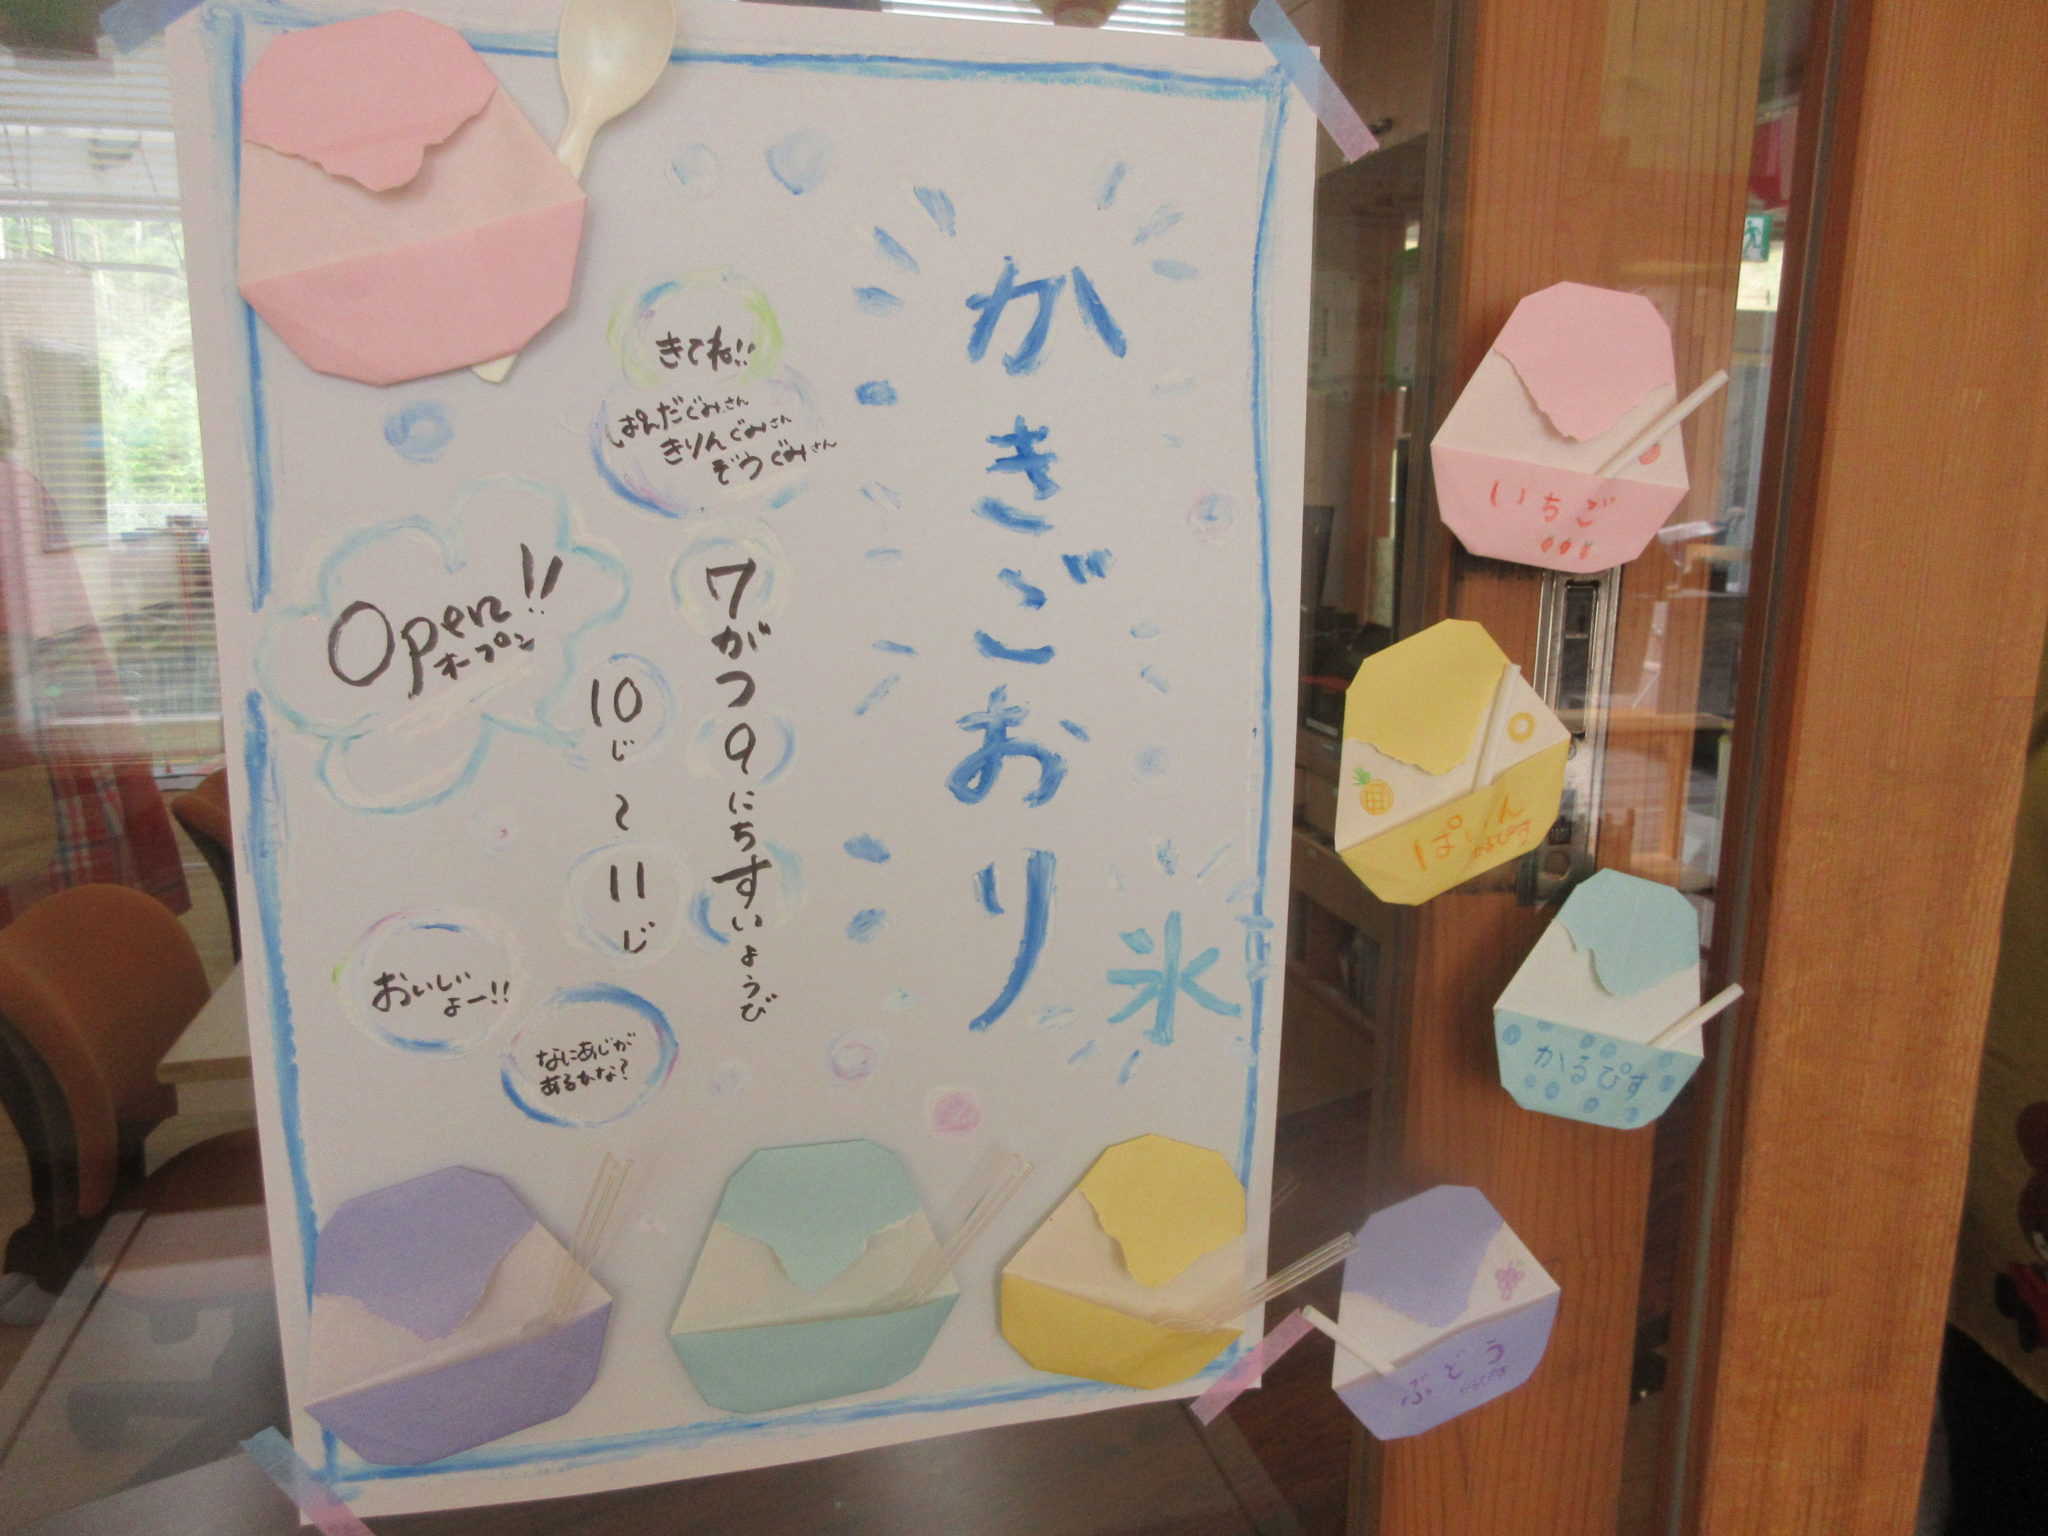 かきごおり
氷
きてね!!
ぱんだぐみさん
きりんぐみさん
ぞうぐみさん
7がつ9にちすいようび
10じ～11じ
Open!!
オープン
おいしい
よー!!
なにあじが
あるかな?
いちご
ぱいん
かるぴす
かるぴす
ぶどう